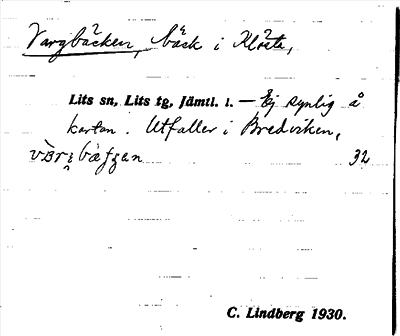 Vargbäcken, bäck i Klösta,
Lits sn, Lits tg, Jämtl. l. — Ej synlig å
kartan. Utfaller i Bredviken,
32
C. Lindberg 1930.